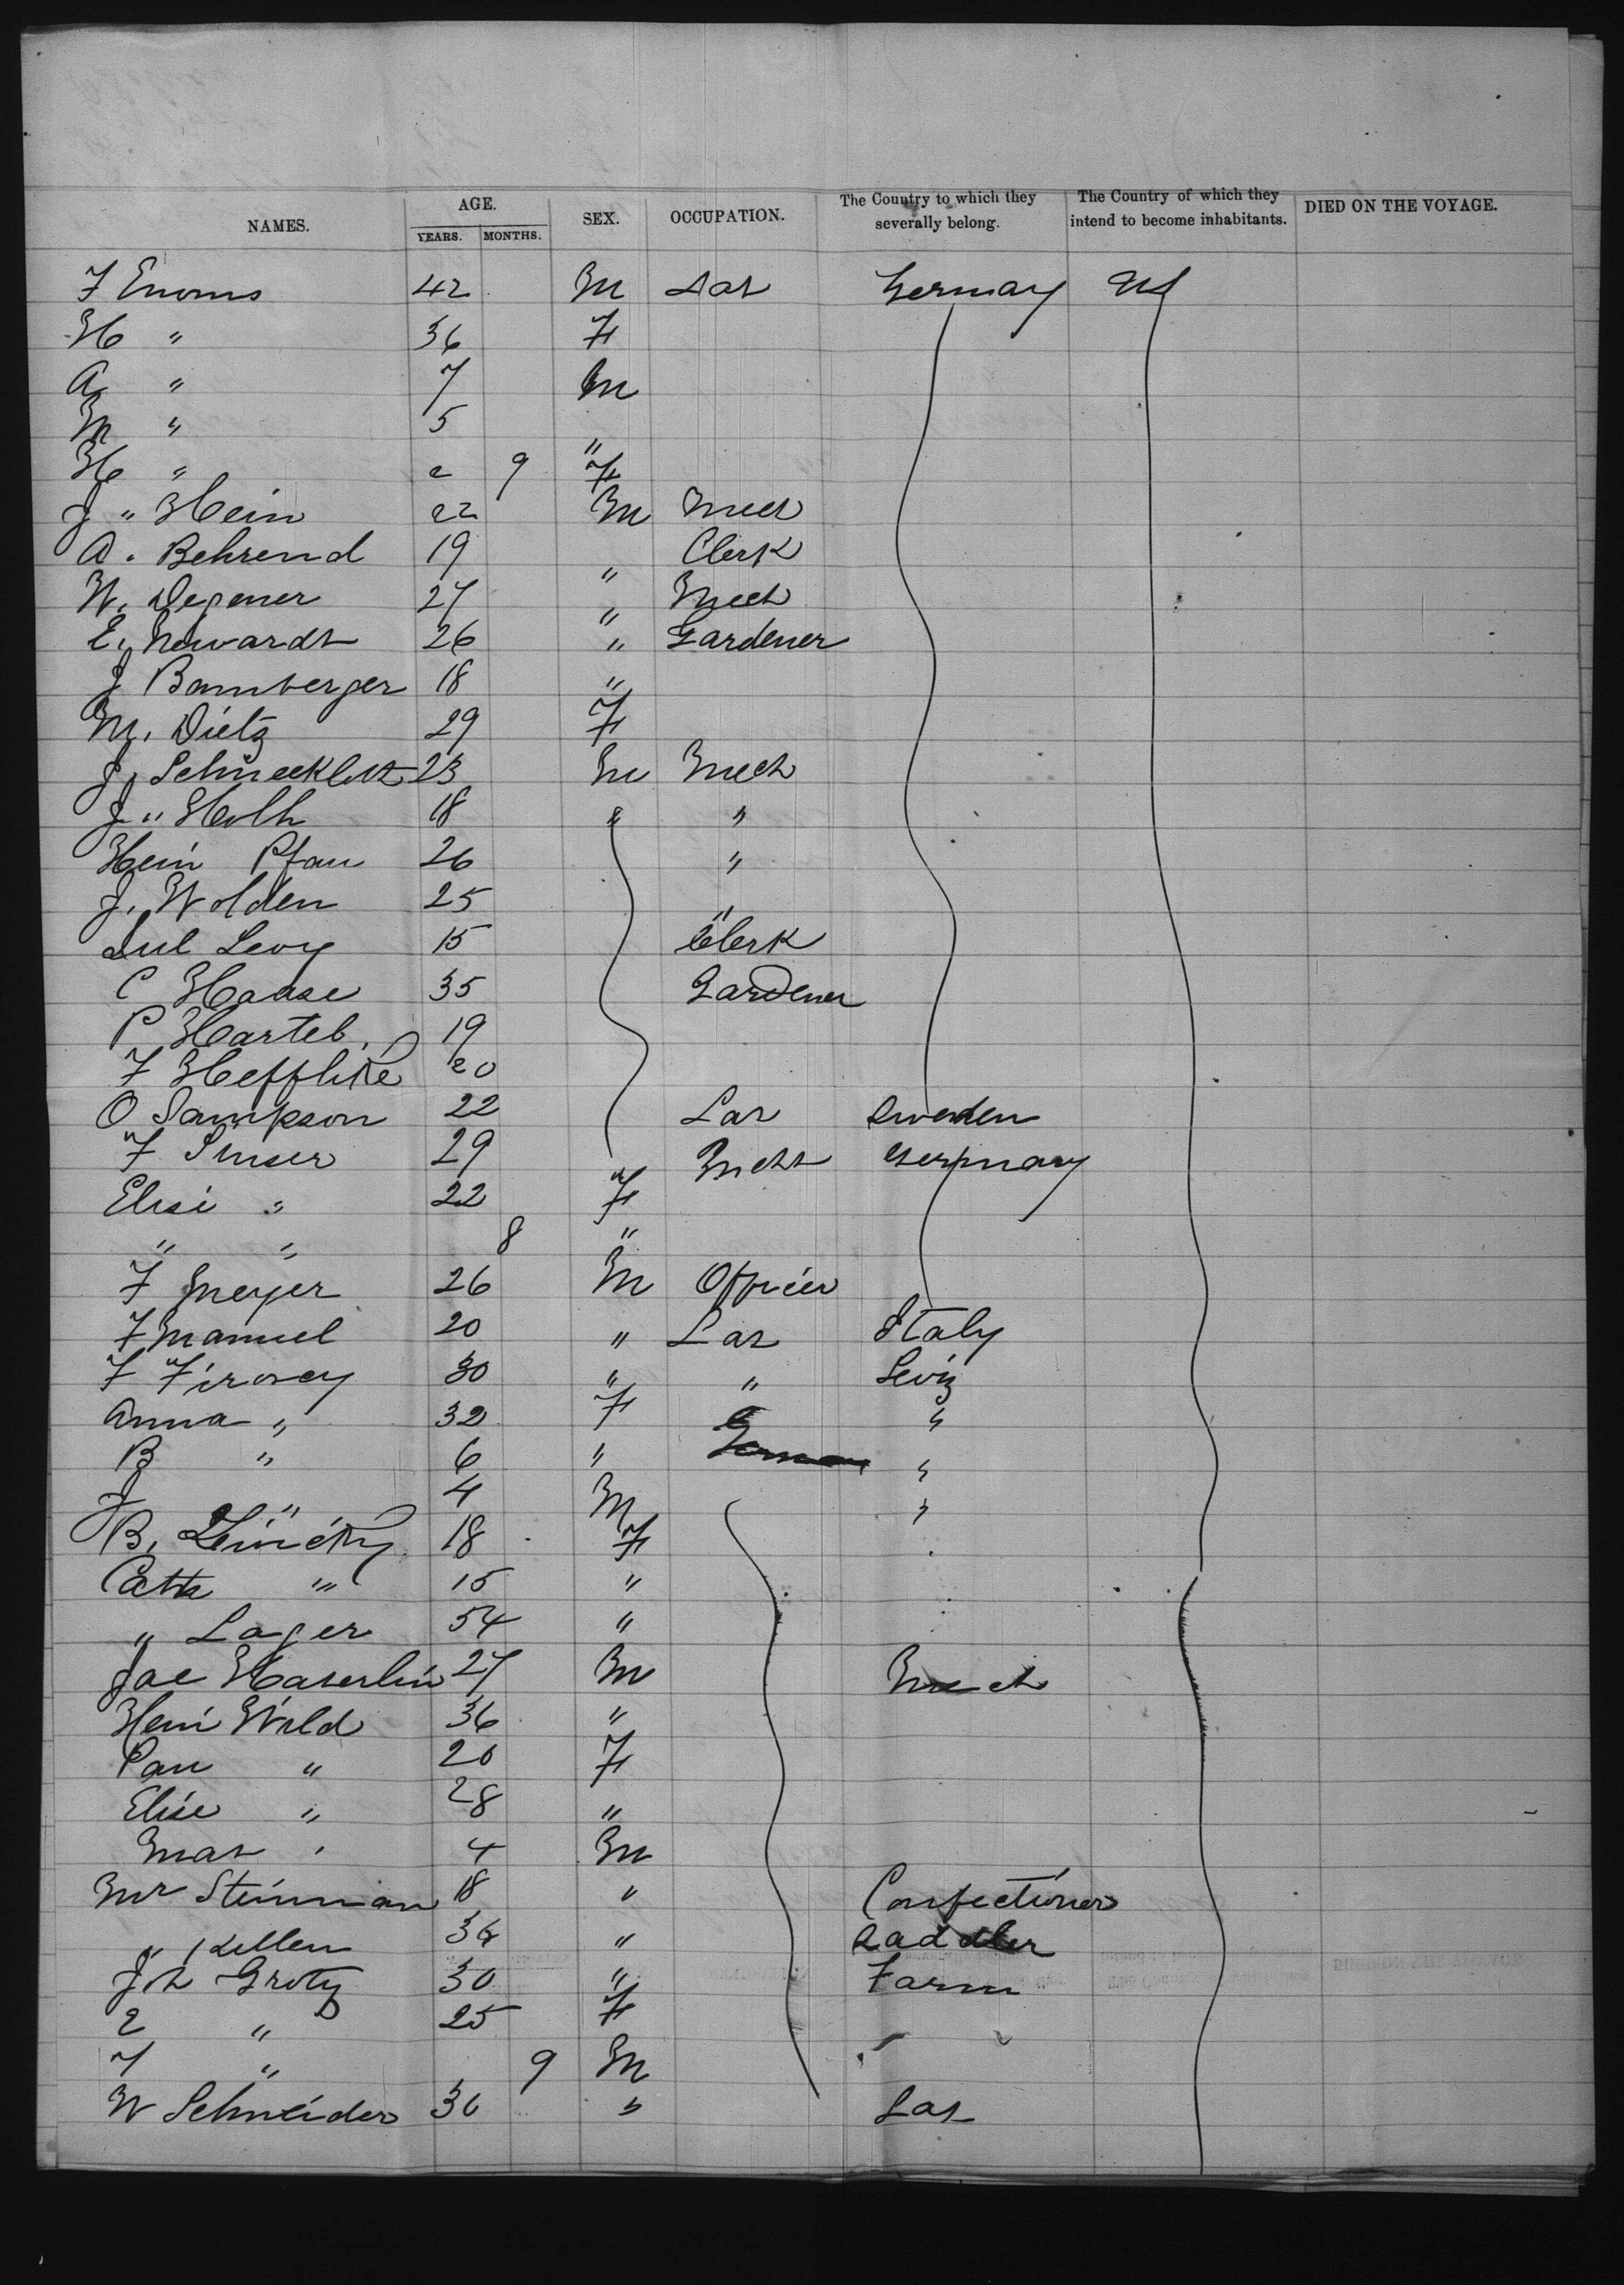 NAMES. AGE. YEARS. MONTHS. SEX. OCCUPATION. The Country to which they severally belong. The Country of which they intend to become inhabitants. DIED ON THE VOYAGE.
F 42 M Lar Germany US
H " 36 F
A " 7 M
M " 5 "
H " 2 9 F
J " Hein 22 M Mech
A. Behrend 19 " Clerk
W. Degener 27 " Mech
E. Newardt 26 " Gardener
J Bamberger 18 "
M. Dietz 29 F
J. 23 M Mech
J " Holh 18 " "
Hein Pfau 26 "
J. Wolden 25 "
Jul Levy 15 Clerk
C Haase 35 Gardener
P Hartel 19
F 20
O Sampson 22 Lar Sweden
F 29 Mech Germany
Elise " 22 F
" " 8 "
F Meyer 26 M Officer
F Manuel 20 " Lar Italy
F 30 " " Swiz
Anna " 32 F "
B " 6 " German "
J " 4 M "
B. 18 F
Cath " 15 "
" Lager 54 "
Jac Haserlin 27 M Mech
Hein Wild 36 "
Pau " 20 F
Elise " 28 "
Max " 4 M
Mr Steinman 18 " Confectioner
" Kellen 36 " Saddler
Jh Grotz 30 " Farm
E " 25 F
F " 9 M
W Schneider 30 " Lar